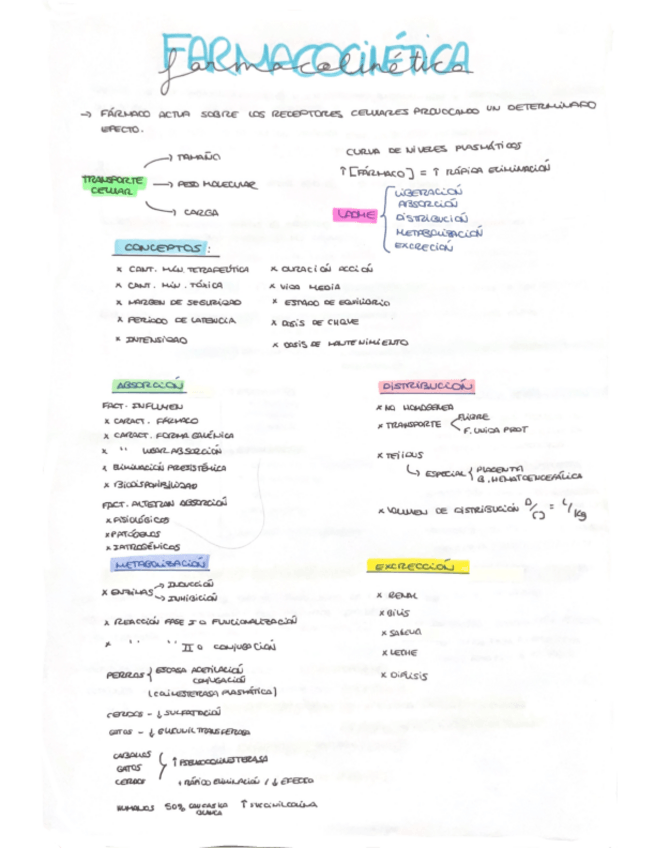 FARMACOCINÉTICA
farmacocinética
→ FÁRMACO ACTUA SOBRE LOS RECEPTORES CELULARES PROVOCANDO UN DETERMINADO
EFECTO.
TRANSPORTE CELULAR
→ TAMAÑO
→ PESO MOLECULAR
→ CARGA
CURVA DE NIVELES PLASMÁTICOS
↑ [FÁRMACO] = ↑ RÁPIDA ELIMINACIÓN
LADME
LIBERACIÓN
ABSORCIÓN
DISTRIBUCIÓN
METABOLIZACIÓN
EXCRECIÓN
CONCEPTOS:
x CANT. MÍN. TERAPEÚTICA
x CANT. MÍN. TÓXICA
x MARGEN DE SEGURIDAD
x PERÍODO DE LATENCIA
x INTENSIDAD
x DURACIÓN ACCIÓN
x VIDA MEDIA
x ESTADO DE EQUILIBRIO
x DOSIS DE CHOQUE
x DOSIS DE MANTENIMIENTO
ABSORCIÓN
FACT. INFLUYEN
x CARACT. FÁRMACO
x CARACT. FORMA GALÉNICA
x " LUGAR ABSORCIÓN
x ELIMINACIÓN PRESISTÉMICA
x BIODISPONIBILIDAD
FACT. ALTERAN ABSORCIÓN
x FISIOLÓGICOS
x PATÓGENOS
x IATROGÉNICOS
DISTRIBUCIÓN
x NO HOMOGENEA
x TRANSPORTE
F. LIBRE
F. UNIDA PROT
x TEJIDOS
↳ ESPECIAL { PLACENTA
B. HEMATOENCEFÁLICA
x VOLUMEN DE DISTRIBUCIÓN D/[] = L/Kg
METABOLIZACIÓN
x ENZIMAS
→ INDUCCIÓN
→ INHIBICIÓN
x REACCIÓN FASE I O FUNCIONALIZACIÓN
x " " II O CONJUGACIÓN
PERROS { ESCASA ACETILACIÓN
CONJUGACIÓN
(COLINESTERASA PLASMÁTICA)
CERDOS - ↓ SULFATACIÓN
GATOS - ↓ GLUCURIL TRANSFERASA
CABALLOS
GATOS
CERDOS
↑ PSEUDOCOLINESTERASA
+ RÁPIDO ELIMINACIÓN / ↓ EFECTO
HUMANOS 50% ↑ SUCCINILCOLINA
EXCRECCIÓN
x RENAL
x BILIS
x SALIVA
x LECHE
x DIÁLISIS